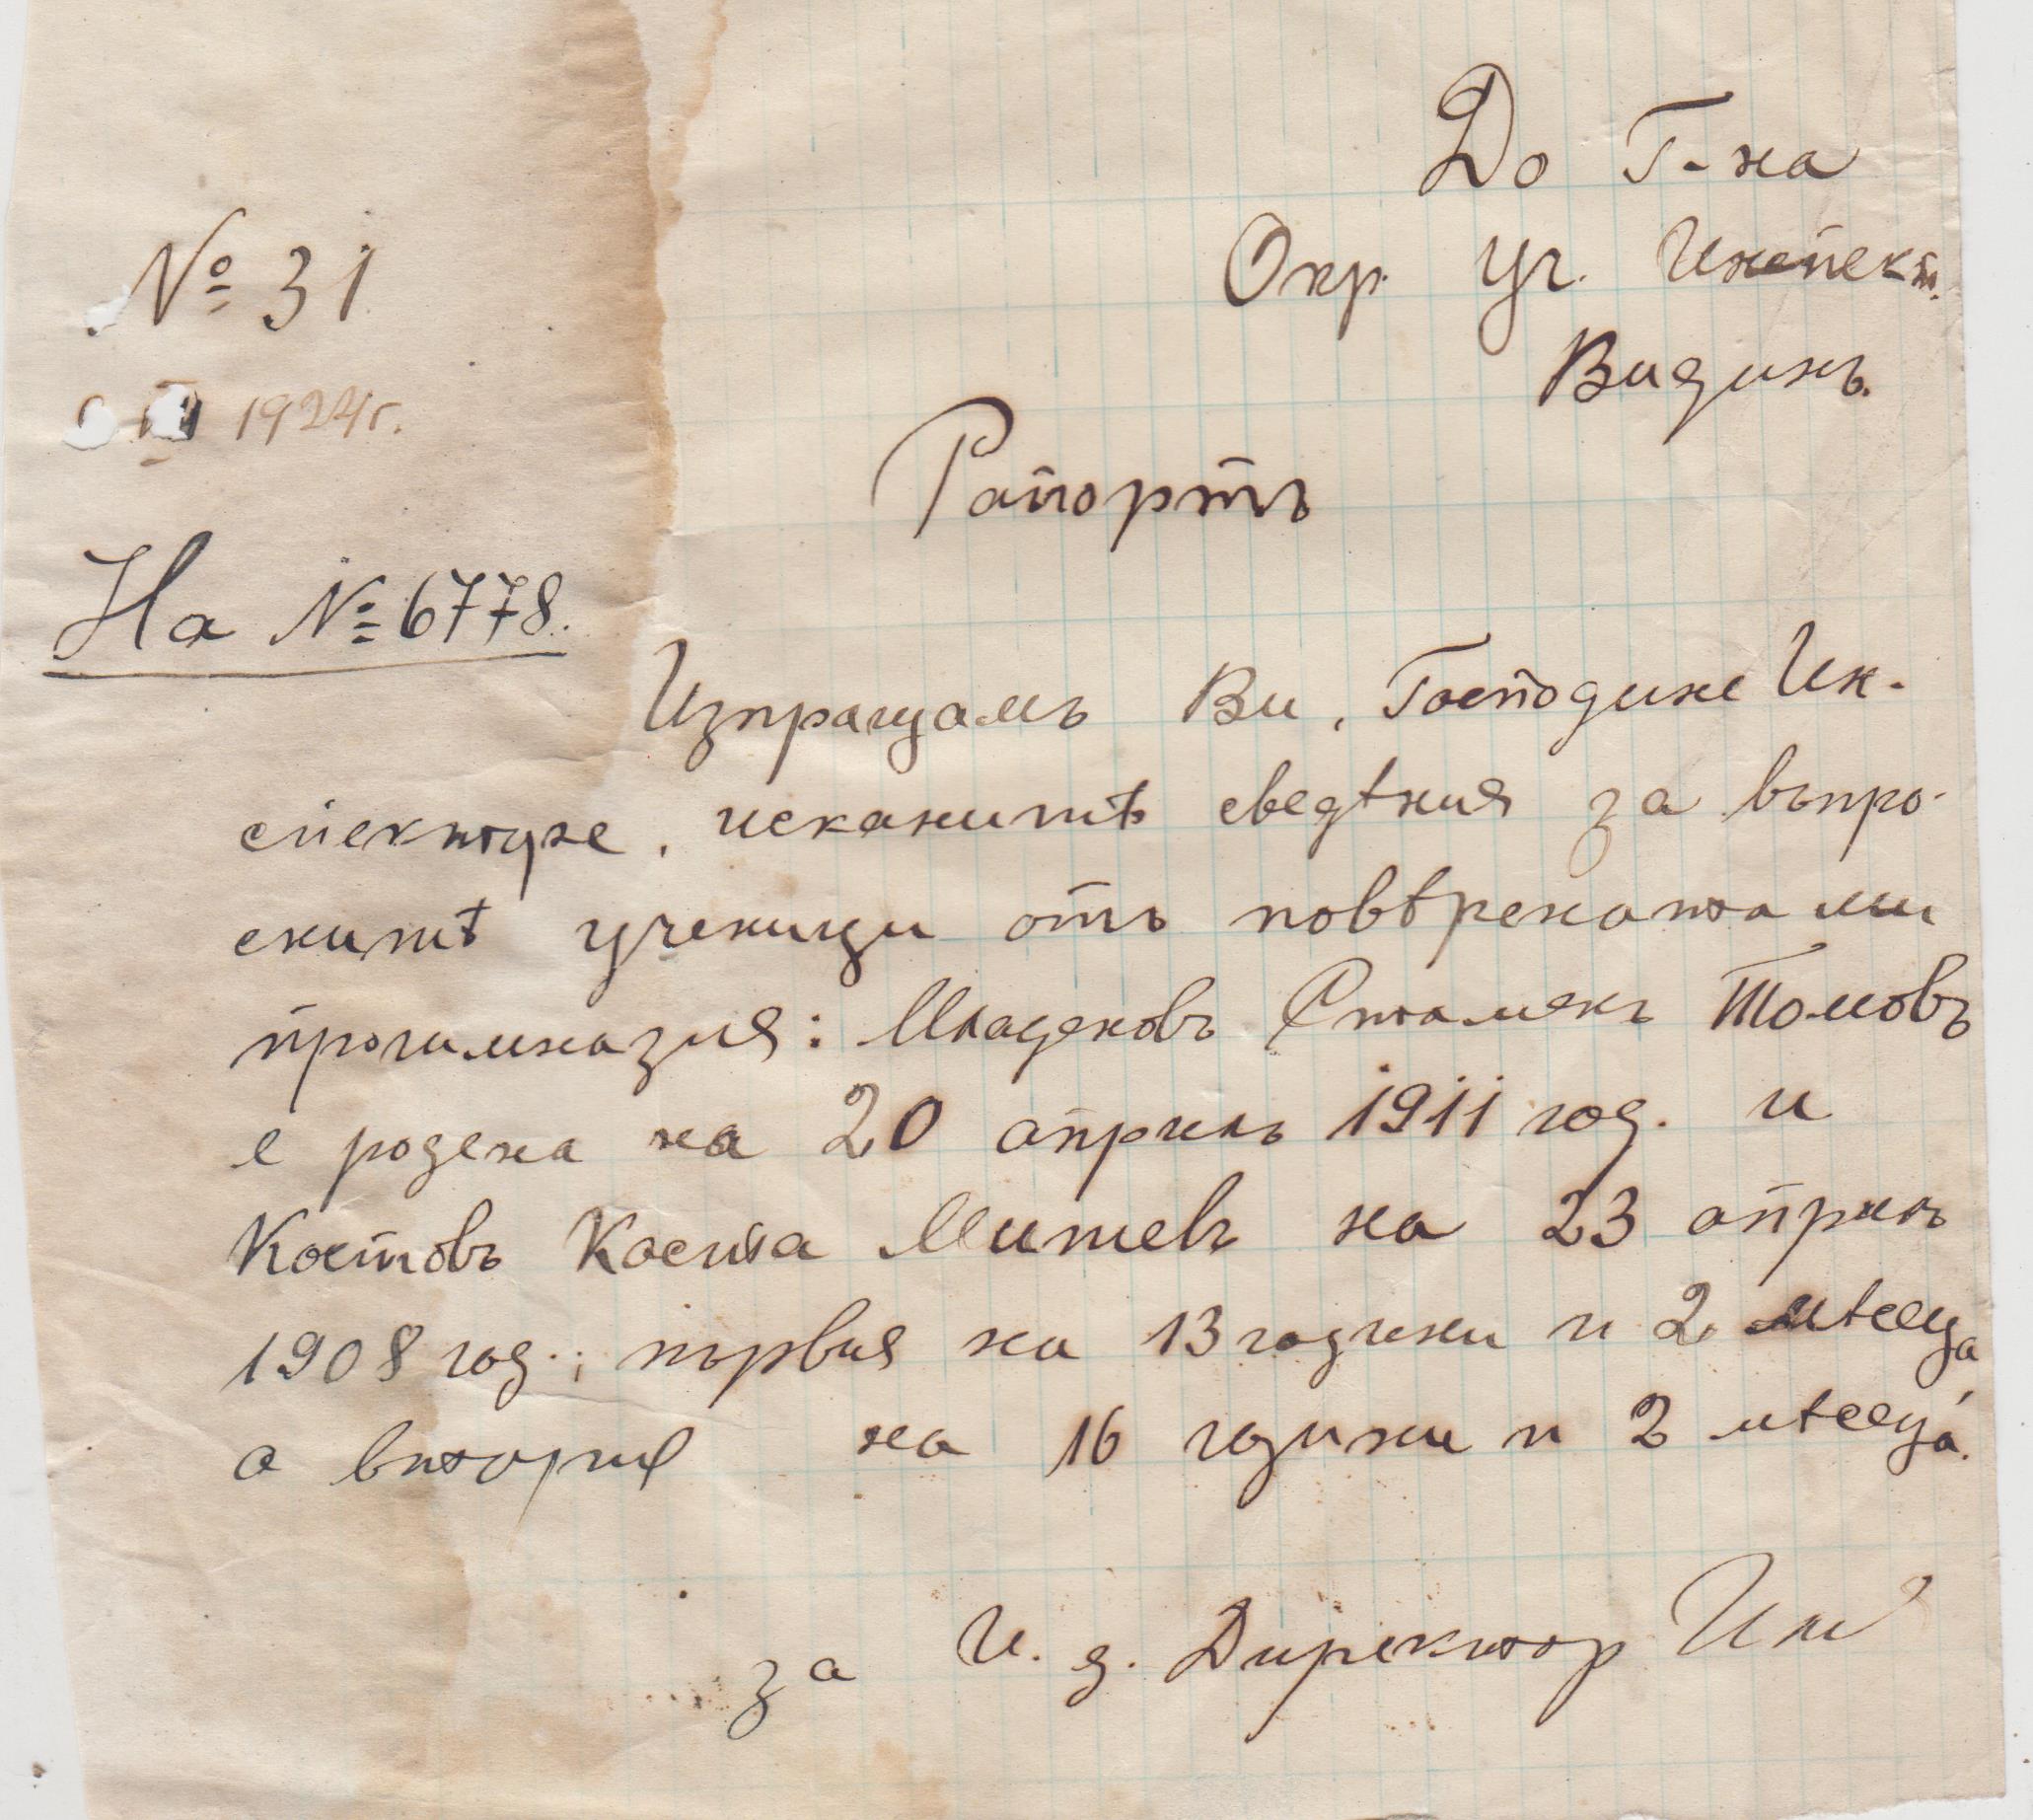 До Г-на
Окр. Уч. Инспект.
Видинъ.
№ 31
1924 г.
Рапортъ
На № 6778.
Изпращамъ Ви, Господине Ин-
спекторе, исканитѣ сведѣния за въпро-
снитѣ ученици отъ повѣрената ми
прогимназия: Младеновъ Стамянъ Томовъ
е родена на 20 априлъ 1911 год. и
Костовъ Коста Митевъ на 23 априлъ
1908 год.; първия на 13 години и 2 мѣсеца
а втория на 16 години и 2 мѣсеца.
за И. д. Директор